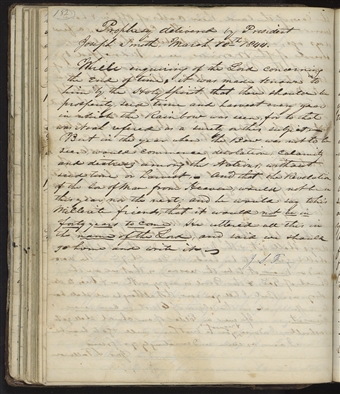 Prophesy delivered by President
Joseph Smith March 10th 1844.
While enquiring of the Lord concerning
the End of time, it was made known to
him by the Holy Spirit that there should be
prosperity seed time and harvest every year
in which the Rainbow was seen, for to that
was it referred as a
But in the year when the Bow was not to be
seen would commence desolation Calamity
and distress among the Nations without
seed time or Harvest. And that the Revelation
of the Son of Man from Heaven would not be in
this year nor the next, and he would say this to
Millerite friends that it would not be in
forty years to come. He uttered all this in
the name of the Lord, and said we should
go home and write it.